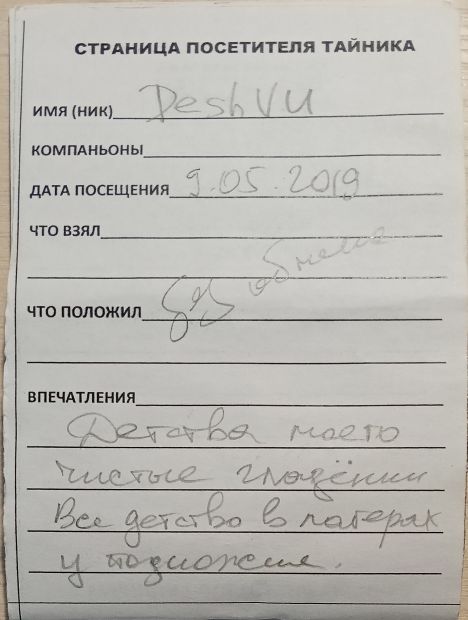 СТРАНИЦА ПОСЕТИТЕЛЯ ТАЙНИКА
ИМЯ (НИК) DeshVU
КОМПАНЬОНЫ
ДАТА ПОСЕЩЕНИЯ 9.05.2019
ЧТО ВЗЯЛ
без обмена
ЧТО ПОЛОЖИЛ
ВПЕЧАТЛЕНИЯ
Детства моего
чистые глазёнки
Все детство в лагерях
у подножия.